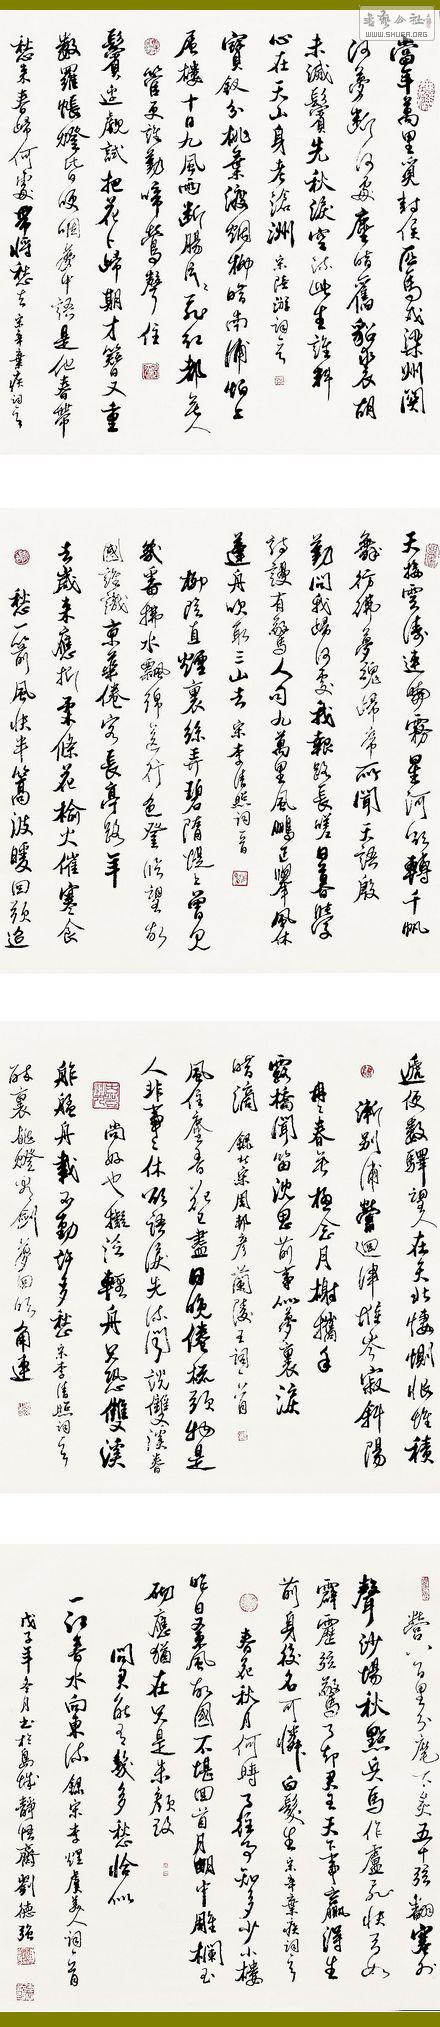 書藝公社
WWW.SHUFA.ORG
當年萬里覓封侯匹馬戍梁州關
河夢斷何處塵暗舊貂裘胡
未滅鬢先秋淚空流此生誰料
心在天山身老滄洲 宋陸游詞一首
寶釵分桃葉渡煙柳暗南浦怕上
層樓十日九風雨斷腸片片飛紅都無人
管更誰勸啼鶯聲住
鬢邊覷試把花卜歸期才簪又重
數羅帳燈昏哽咽夢中語是他春帶
愁來春歸何處帶將愁去 宋辛棄疾詞一首
天接雲濤連曉霧星河欲轉千帆
舞彷彿夢魂歸帝所聞天語殷
勤問我歸何處我報路長嗟日暮學
詩謾有驚人句九萬里風鵬正舉風休
蓬舟吹取三山去 宋李清照詞一首
柳陰直煙裏絲弄碧隋堤上曾見
幾番拂水飄綿送行色登臨望故
國誰識京華倦客長亭路年
去歲來應折柔條花榆火催寒食
愁一箭風快半篙波暖回頭迢
遞便數驛望人在天北悽惻恨堆積
漸別浦縈迴津堠岑寂斜陽
冉冉春無極念月榭攜手
露橋聞笛沈思前事似夢裏淚
暗滴 錄北宋周邦彥蘭陵王詞一首
風住塵香花已盡日晚倦梳頭物是
人非事事休欲語淚先流聞說雙溪春
尚好也擬泛輕舟只恐雙溪
舴艋舟載不動許多愁 宋李清照詞一首
醉裏挑燈看劍夢回吹角連
營八百里分麾下炙五十弦翻塞外
聲沙場秋點兵馬作盧飛快弓如
霹靂弦驚了卻君王天下事贏得生
前身後名可憐白髮生 宋辛棄疾詞一首
春花秋月何時了往事知多少小樓
昨日東風故國不堪回首月明中雕欄玉
砌應猶在只是朱顏改
問君能有幾多愁恰似
一江春水向東流 錄宋李煜虞美人詞一首
戊子年冬月書於島城靜悟齋劉德強